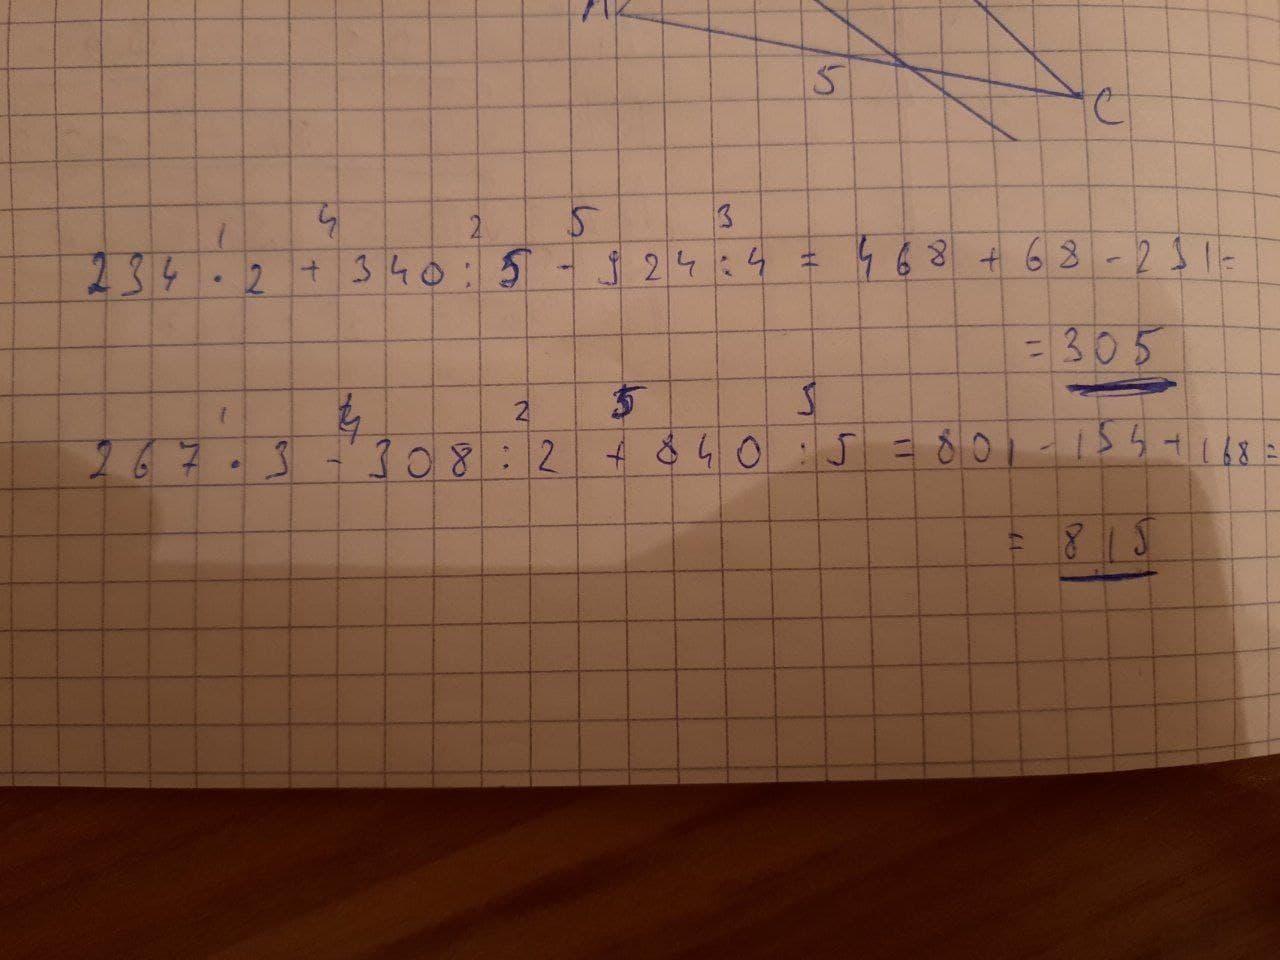 A
5
C
1 4 2 5 3
234 · 2 + 340 : 5 - 924 : 4 = 468 + 68 - 231 =
= 305
1 4 2 5 3
267 · 3 - 308 : 2 + 840 : 5 = 801 - 154 + 168 =
= 815